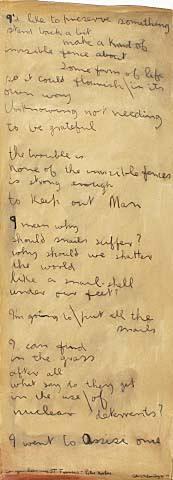 I'd like to preserve something
stand back a bit
make a kind of
invisible fence about
some form of life
so it could flourish \ in its
own way
Unknowing not needing
to be grateful
the trouble is
none of the invisible fences
is strong enough
to keep out Man
I mean why
should snails suffer?
why should we shatter
the world
like a snail-shell
under our feet?
I'm going to \ put all the
snails
I can find
in the grass
after all
what say do they get
in the use \ of
nuclear deterrents?
I went to one